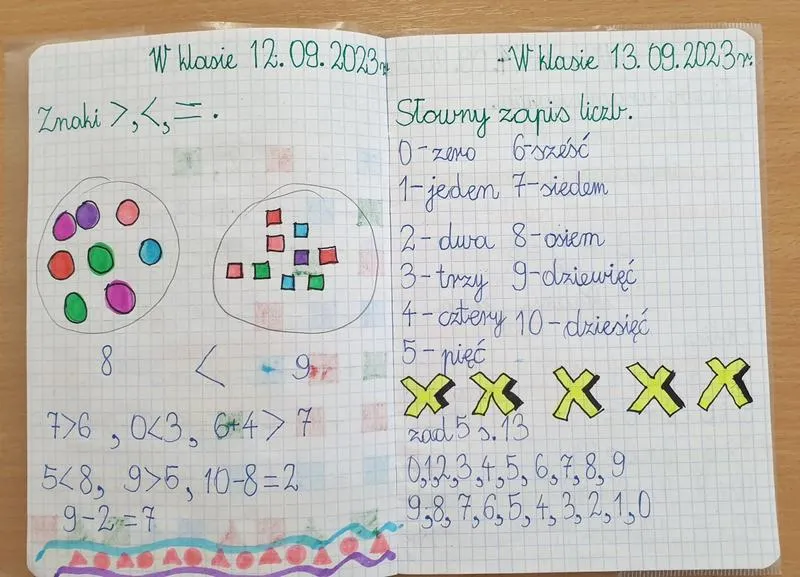 W klasie 12.09.2023r.
Znaki >, <, = .
8 < 9
7>6 , 0<3, 6+4>7
5<8, 9>5, 10-8=2
9-2=7
W klasie 13.09.2023r.
Słowny zapis liczb.
0-zero 6-sześć
1-jeden 7-siedem
2-dwa 8-osiem
3-trzy 9-dziewięć
4-cztery 10-dziesięć
5-pięć
zad 5 s. 13
0,1,2,3,4,5,6,7,8,9
9,8,7,6,5,4,3,2,1,0